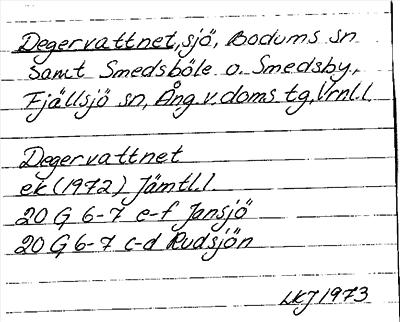 Degervattnet, sjö, Bodums sn
samt Smedsböle o. Smedsby,
Fjällsjö sn, Ång v. doms tg, Vrnl.l.
Degervattnet
ek (1972) Jämtl.l.
20 G 6-7 e-f Jansjö
20 G 6-7 c-d Rudsjön
LKJ 1973